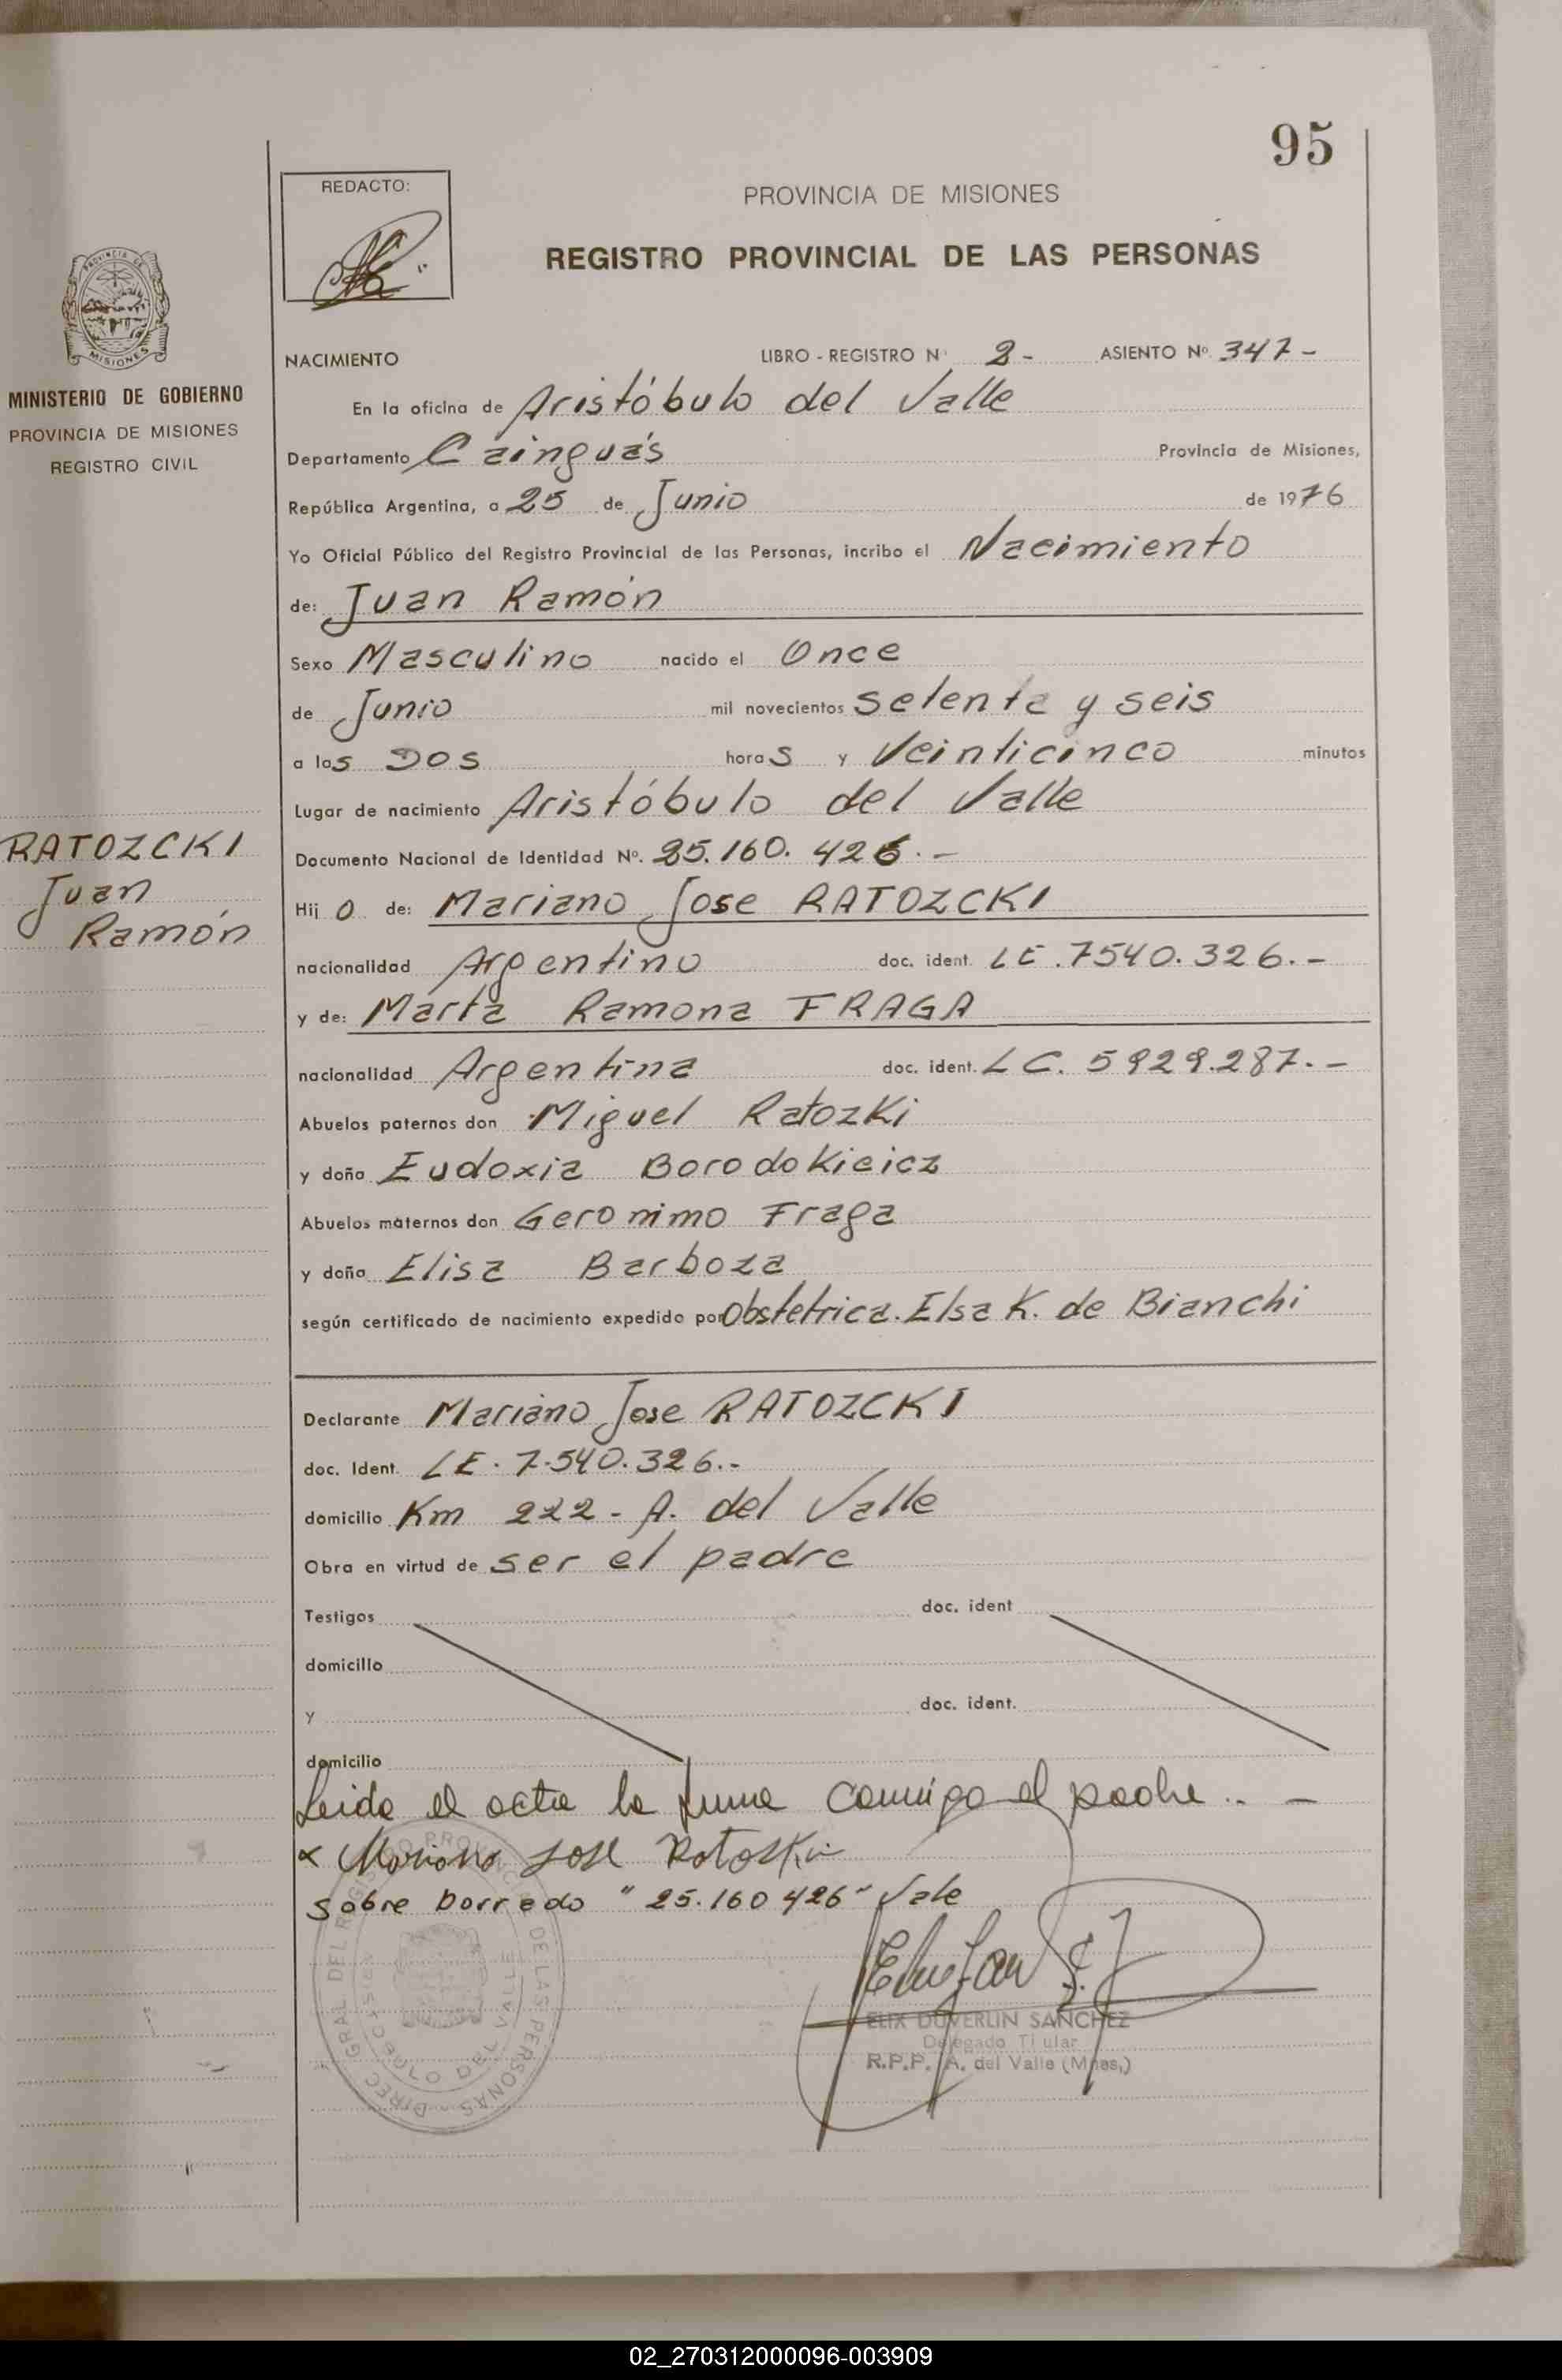 95
REDACTO:
PROVINCIA DE MISIONES
REGISTRO PROVINCIAL DE LAS PERSONAS
PROVINCIA DE
MISIONES
MINISTERIO DE GOBIERNO
PROVINCIA DE MISIONES
REGISTRO CIVIL
NACIMIENTO LIBRO - REGISTRO Nº 2- ASIENTO Nº 347-
En la oficina de Aristóbulo del Valle
Departamento Cainguás Provincia de Misiones,
República Argentina, a 25 de Junio de 1976
Yo Oficial Público del Registro Provincial de las Personas, incribo el Nacimiento
de: Juan Ramón
Sexo Masculino nacido el Once
de Junio mil novecientos setenta y seis
a las Dos horas y Veinticinco minutos
Lugar de nacimiento Aristóbulo del Valle
RATOZCKI
Juan
Ramón
Documento Nacional de Identidad Nº. 25.160.426.-
Hijo de: Mariano Jose RATOZCKI
nacionalidad Argentino doc. ident. LE.7540.326.-
y de: Marta Ramona FRAGA
nacionalidad Argentina doc. ident. LC. 5929.287.-
Abuelos paternos don Miguel Ratozki
y doña Eudoxia Borodokieicz
Abuelos maternos don Geronimo Fraga
y doña Elisa Barboza
según certificado de nacimiento expedido por Obstetrica. Elsa K. de Bianchi
Declarante Mariano Jose RATOZCKI
doc. Ident. LE. 7.540.326.-
domicilio Km 222 - A. del Valle
Obra en virtud de ser el padre
Testigos doc. ident
domicilio
y doc. ident.
domicilio
Leida el acta la firma conmigo el padre.. -
x Mariano Jose Ratoski
Sobre borrado "25.160426" Vale
DIREC. GRAL DEL REGISTRO PROVINCIAL DE LAS PERSONAS
DEL VALLE
ELIX DUVERLIN SANCHEZ
Delegado Titular
R.P.P. A. del Valle (Mnes,)
02_270312000096-003909